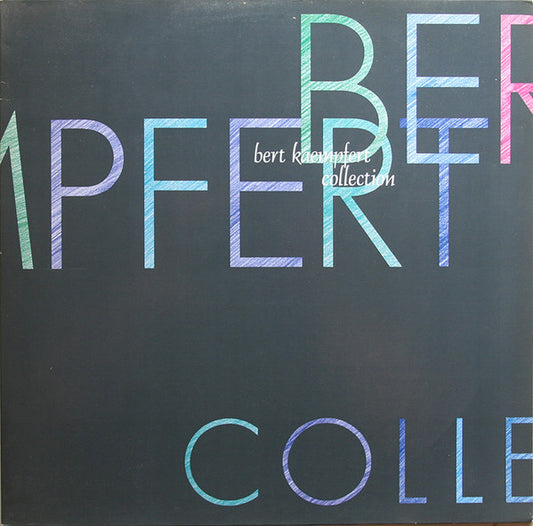 BER
MPFERT
bert kaempfert
collection
COLLE